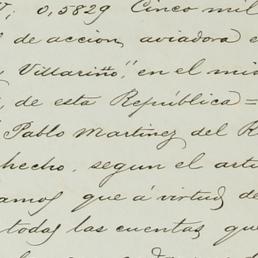 0,5829 Cinco mil
de accion, aviadora
Villariño," en el mis
de esta República =
Pablo Martinez del R
hecho, segun el arti
amos que á virtud de
todas las cuentas, que